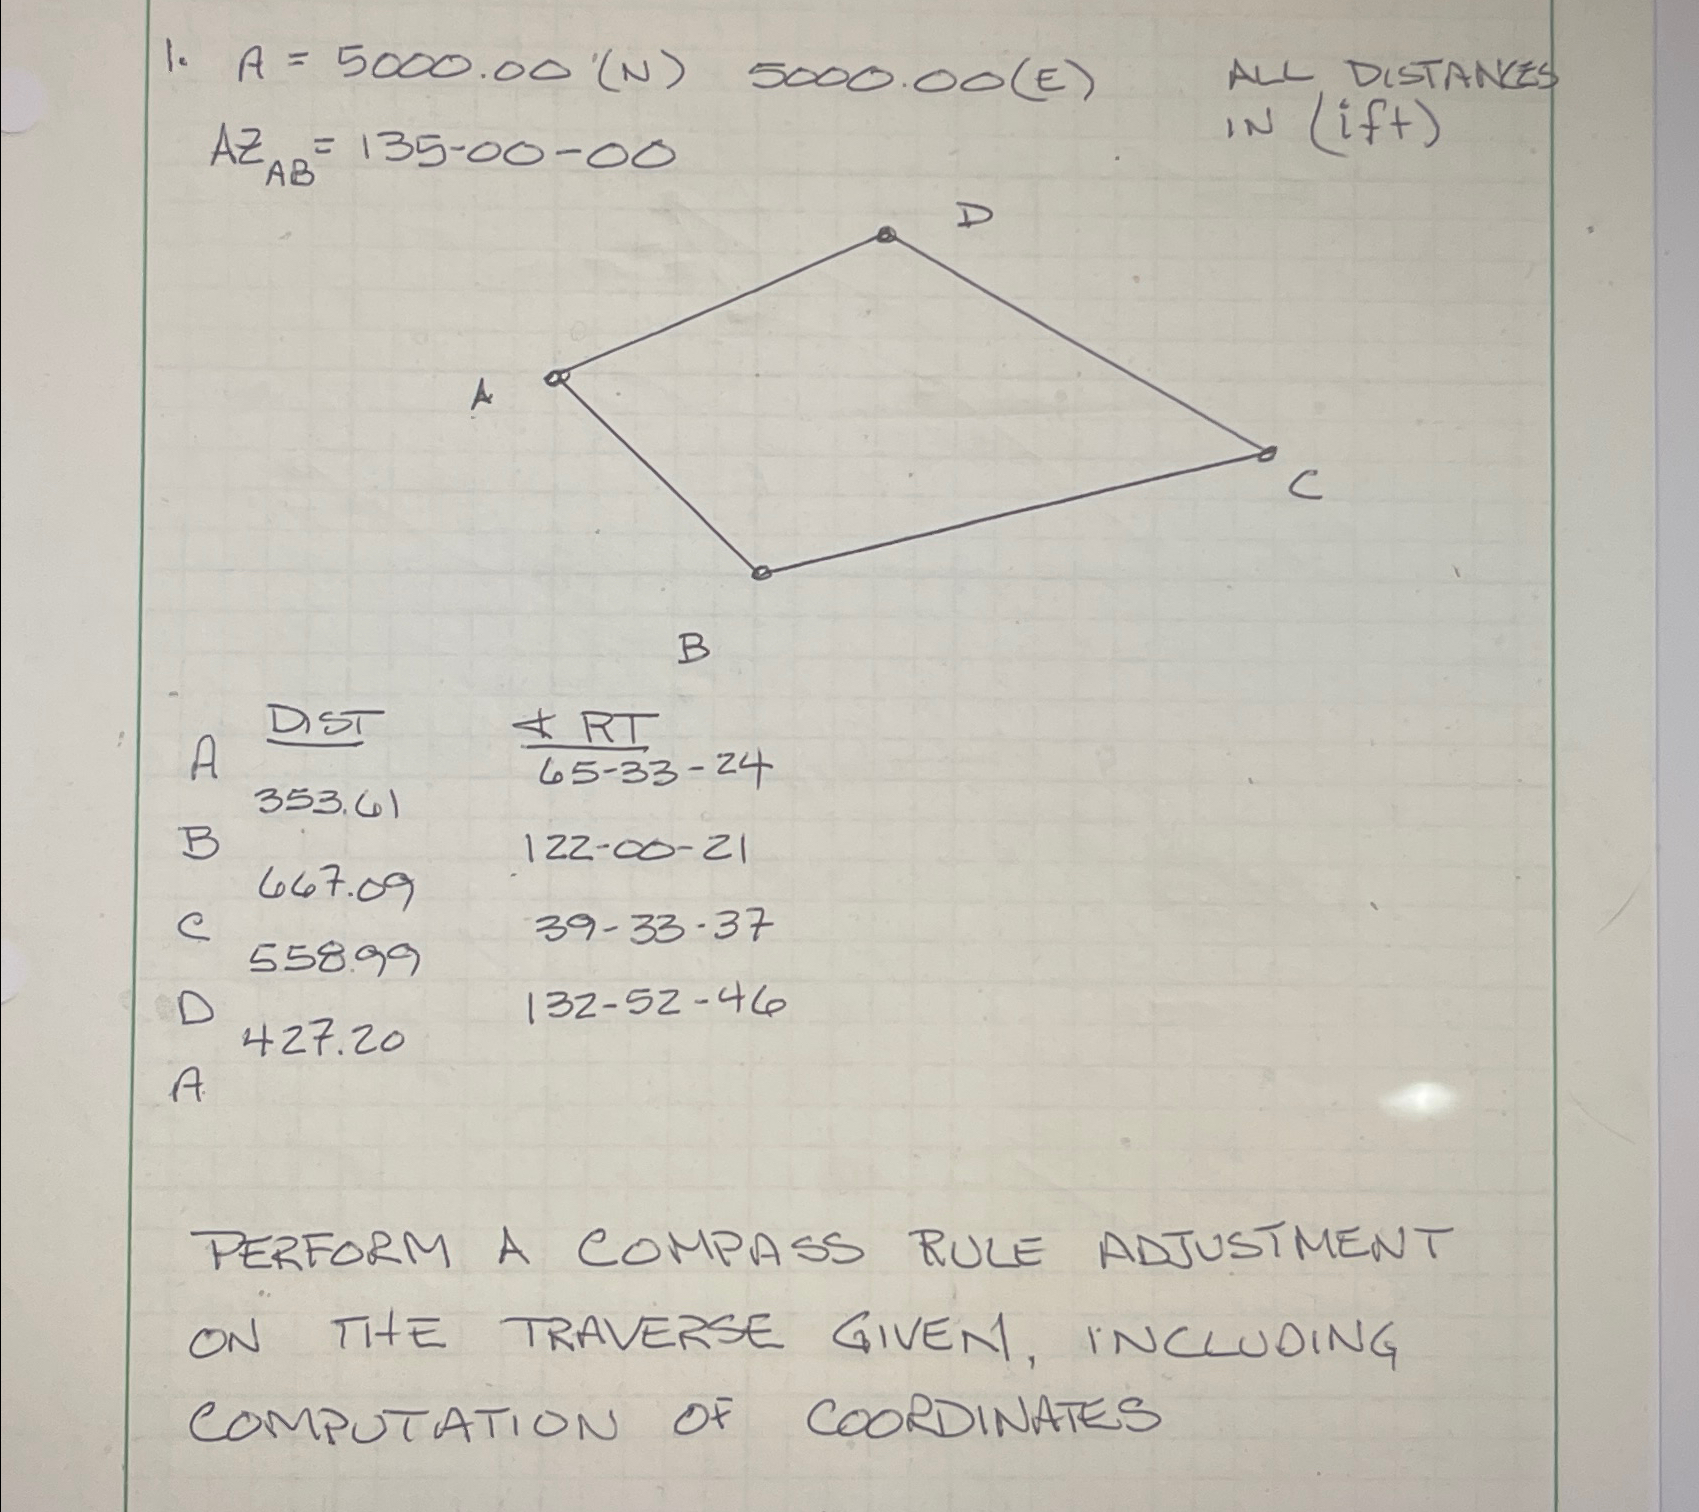 1. A = 5000.00 '(N) 5000.00(E) ALL DISTANCES
IN (ift)
AZAB = 135-00-00
D
A
C
B
DIST ∡ RT
A 65-33-24
353.61
B 122-00-21
667.09
C 39-33-37
558.99
D 132-52-46
427.20
A
PERFORM A COMPASS RULE ADJUSTMENT
ON THE TRAVERSE GIVEN, INCLUDING
COMPUTATION OF COORDINATES